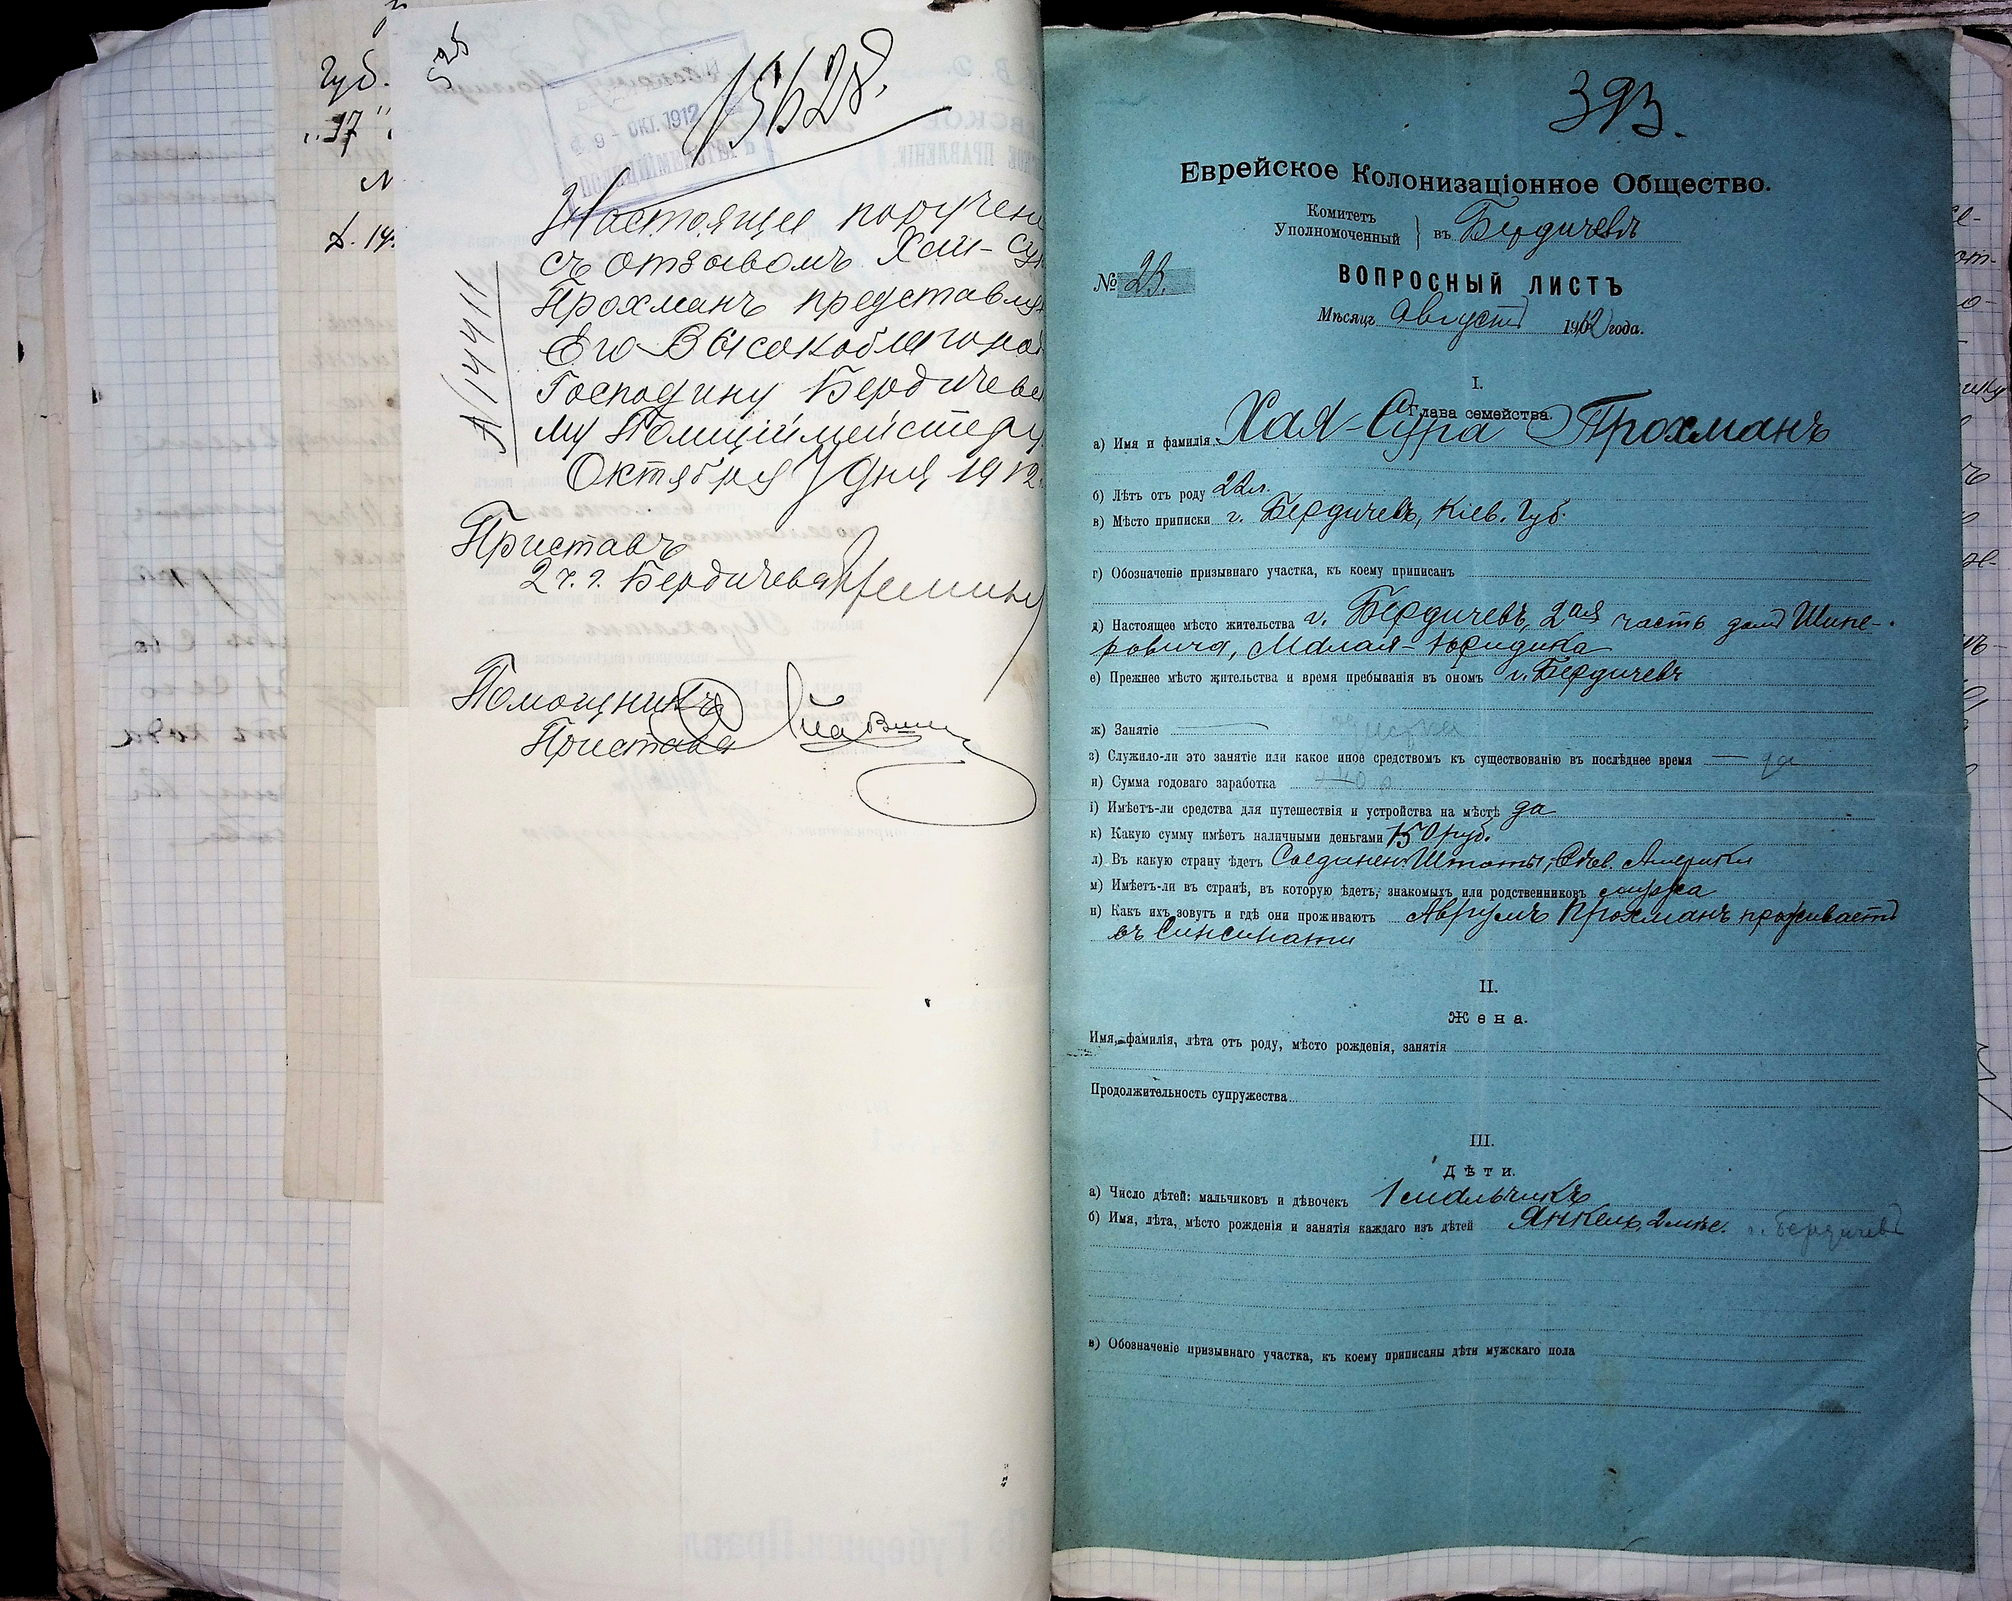 Губ.
"17"
525
15628.
9 - ОКТ. 1912
Настоящее поручен
съ отзывомъ Хаи-Су
Прохманъ представля
Его Высокоблагоро
Господину Бердичевс
му Полиціймейстеру
Октября 7 дня 1912
N 14411
Приставъ
2 ч. г. Бердичева
Помощникъ
Пристава
393.
Еврейское Колонизаціонное Общество.
Комитетъ
Уполномоченный } въ Бердичевъ
№ 23.
ВОПРОСНЫЙ ЛИСТЪ
Мѣсяцъ Августъ 1912 года.
I.
Глава семейства.
а) Имя и фамилія Хая-Сура Прохманъ
б) Лѣтъ отъ роду 22 л.
в) Мѣсто приписки г. Бердичевъ, Кіев. Губ.
г) Обозначеніе призывнаго участка, къ коему приписанъ
д) Настоящее мѣсто жительства г. Бердичевъ, 2ая часть домъ Шине-
ровича, Малая-Юридика
е) Прежнее мѣсто жительства и время пребыванія въ ономъ г. Бердичевъ
ж) Занятіе
з) Служило-ли это занятіе или какое иное средствомъ къ существованію въ послѣднее время — да
и) Сумма годоваго заработка
і) Имѣетъ-ли средства для путешествія и устройства на мѣстѣ да
к) Какую сумму имѣетъ наличными деньгами 150 руб.
л) Въ какую страну ѣдетъ Соединен. Штаты, Сѣв. Америки
м) Имѣетъ-ли въ странѣ, въ которую ѣдетъ, знакомыхъ или родственниковъ мужа
н) Какъ ихъ зовутъ и гдѣ они проживаютъ Аврумъ Прохманъ проживаетъ
въ Синсинати
II.
Жена.
Имя, фамилія, лѣта отъ роду, мѣсто рожденія, занятія
Продолжительность супружества
III.
Дѣти.
а) Число дѣтей: мальчиковъ и дѣвочекъ 1 мальчикъ
б) Имя, лѣта, мѣсто рожденія и занятія каждаго изъ дѣтей Янкель, 2 мѣс. г. Бердичевъ
в) Обозначеніе призывнаго участка, къ коему приписаны дѣти мужскаго пола